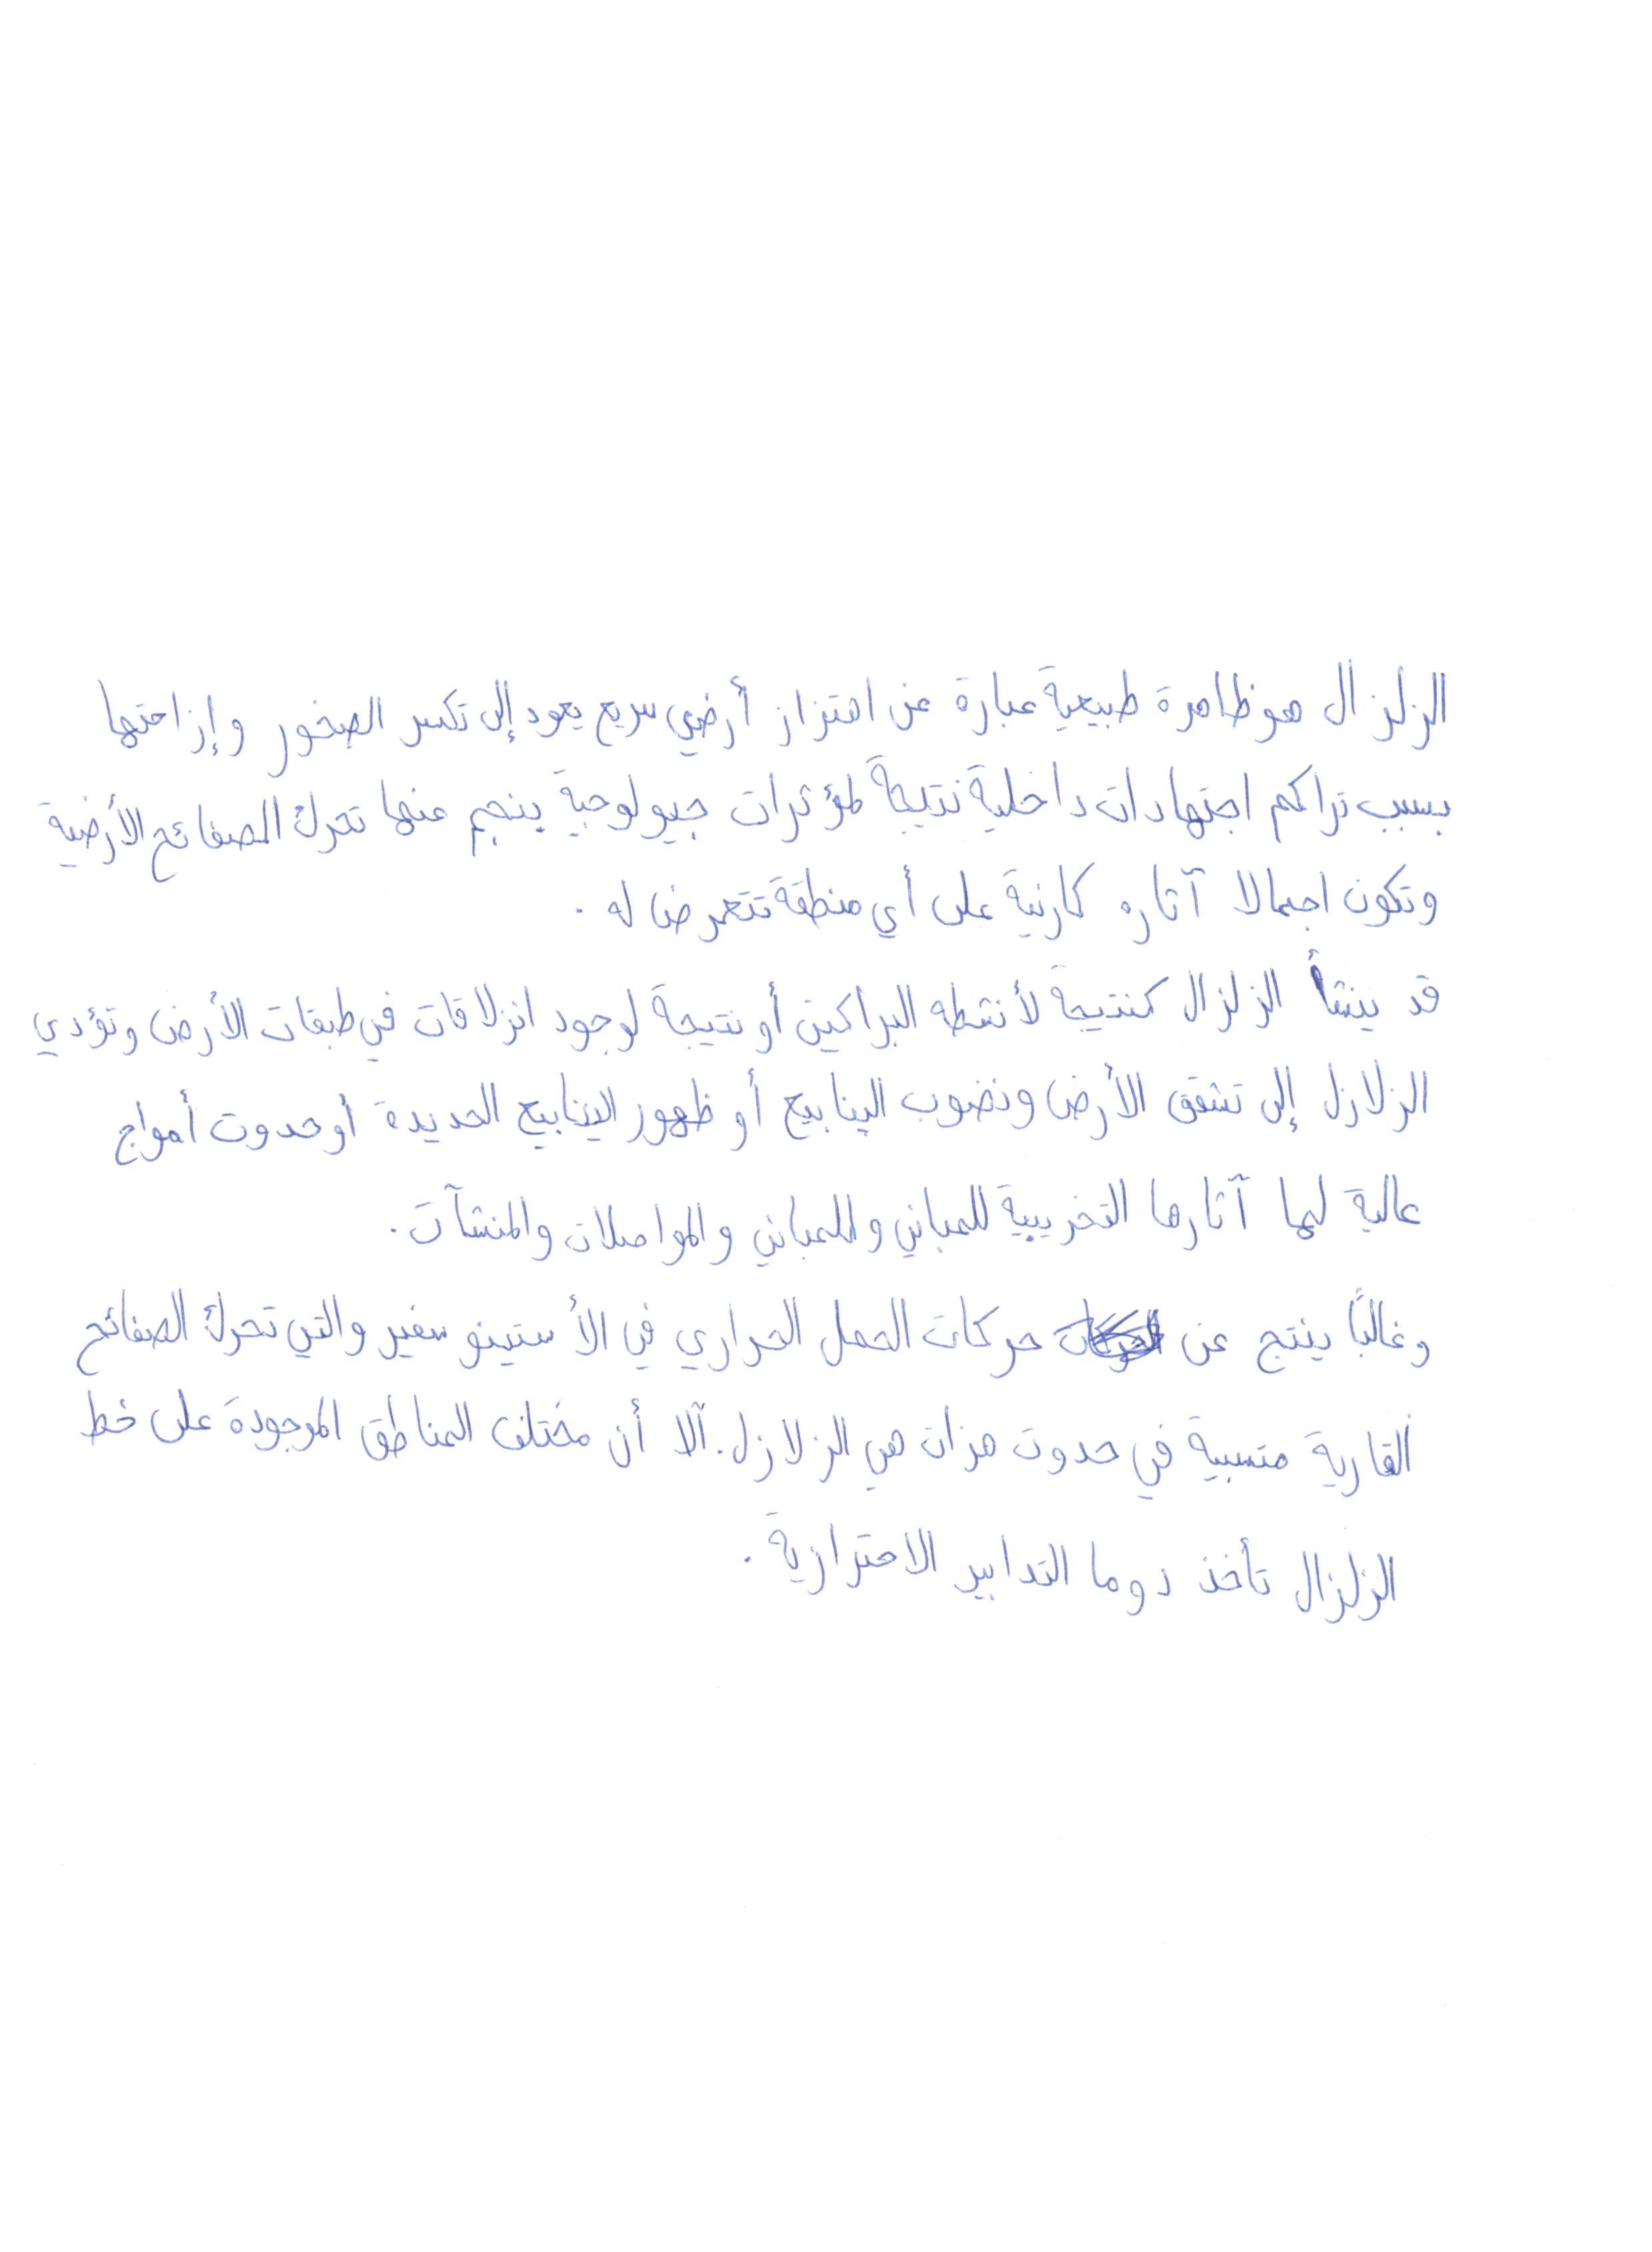 الزلزال هو ظاهرة طبيعية عبارة عن اهتزاز أرضي سريع يعود إلى تكسر الصخور وإزاحتها
بسبب تراكم اجتهادات داخلية نتيجة لمؤثرات جيولوجية ينجم عنها تحرك الصفائح الأرضية
وتكون اجمالا آثاره كارثية على أي منطقة تتعرض له .
قد ينشأ الزلزال كنتيجة لأنشطه البراكين أو نتيجة لوجود انزلاقات في طبقات الأرض وتؤدي
الزلازل إلى تشقق الأرض ونضوب الينابيع أو ظهور الينابيع الجديدة أو حدوث أمواج
عالية لها آثارها التخريبية للمباني والمباني والمواصلات والمنشآت .
وغالبًا ينتج عن حركات الحمل الحراري في الأستينوسفير والتي تحرك الصفائح
القارية متسببة في حدوث هزات هي الزلازل . ألا أن مختلف المناطق الموجودة على خط
الزلزال تأخذ دوما التدابير الاحترازية .